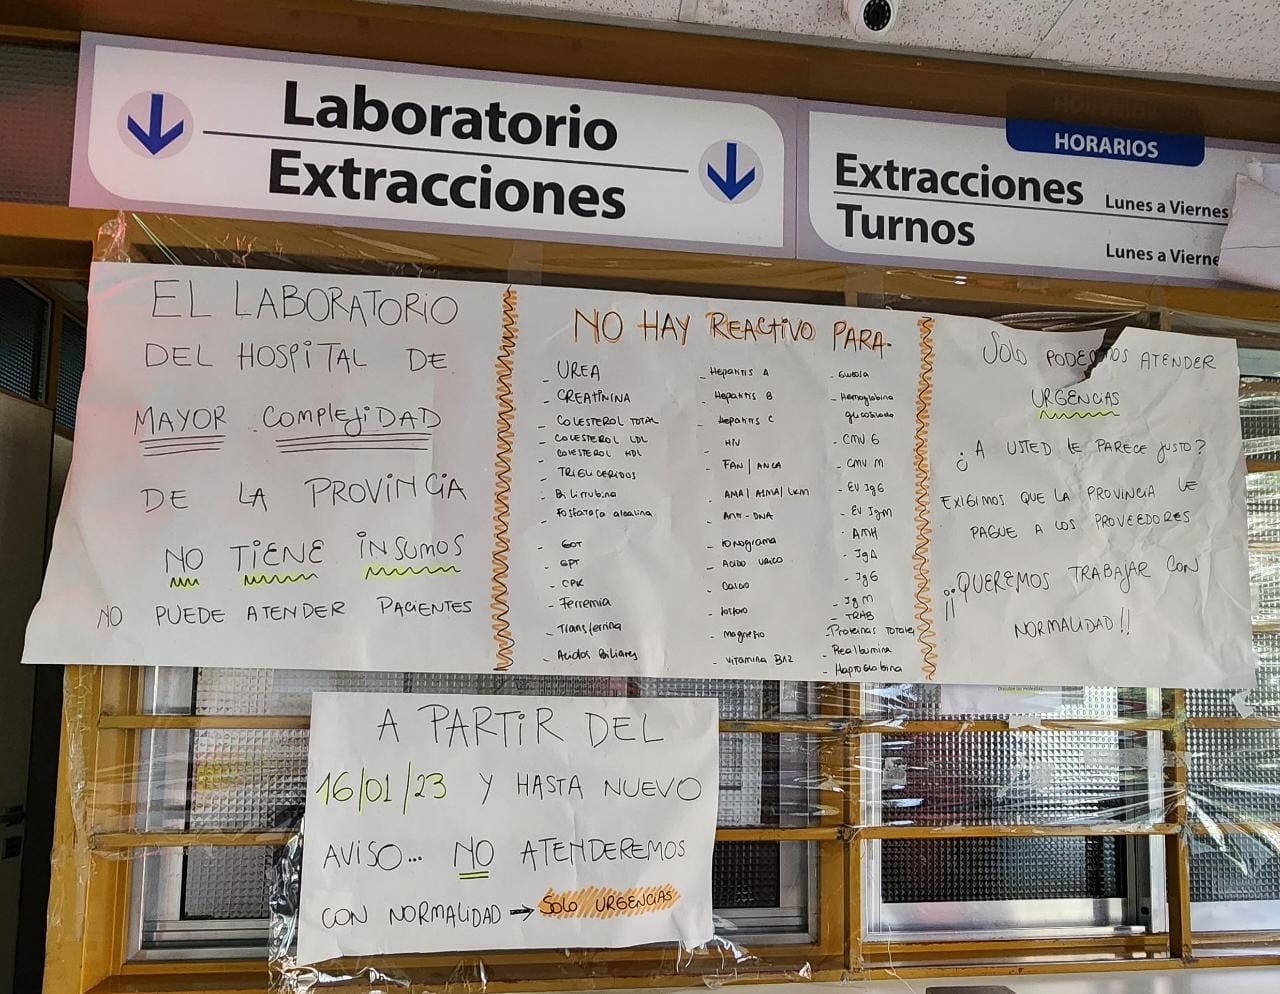 Laboratorio
Extracciones
HORARIOS
Extracciones Lunes a Viernes
Turnos
Lunes a Vierne
EL LABORATORIO
DEL HOSPITAL DE
MAYOR COMPLEJIDAD
DE LA PROVINCIA
NO TIENE INSUMOS
NO PUEDE ATENDER PACIENTES
NO HAY REACTIVO PARA.
- UREA
- CREATININA
- COLESTEROL TOTAL
- COLESTEROL LDL
- COLESTEROL HDL
- TRIGLICERIDOS
- Bilirrubina
- Fosfatasa alcalina
- GOT
- GPT
- CPK
- Ferremia
- Transferrina
- Acidos Biliares
- Hepatitis A
- Hepatitis B
- Hepatitis C
- HIV
- FAN / ANCA
- AMA / ASMA / LKM
- Anti-DNA
- Ionograma
- Acido urico
- Calcio
- Fosforo
- Magnesio
- Vitamina B12
- Glucosa
- Hemoglobina
glicosilada
- CMV G
- CMV M
- EV IgG
- EV IgM
- AMH
- IgA
- IgG
- IgM
- TRAB
- Proteinas Totales
- Prealbumina
- Haptoglobina
SOLO PODEMOS ATENDER
URGENCIAS
¿A USTED LE PARECE JUSTO?
EXIGIMOS QUE LA PROVINCIA LE
PAGUE A LOS PROVEEDORES
¡¡QUEREMOS TRABAJAR CON
NORMALIDAD!!
A PARTIR DEL
16/01/23 Y HASTA NUEVO
AVISO... NO ATENDEREMOS
CON NORMALIDAD → SOLO URGENCIAS